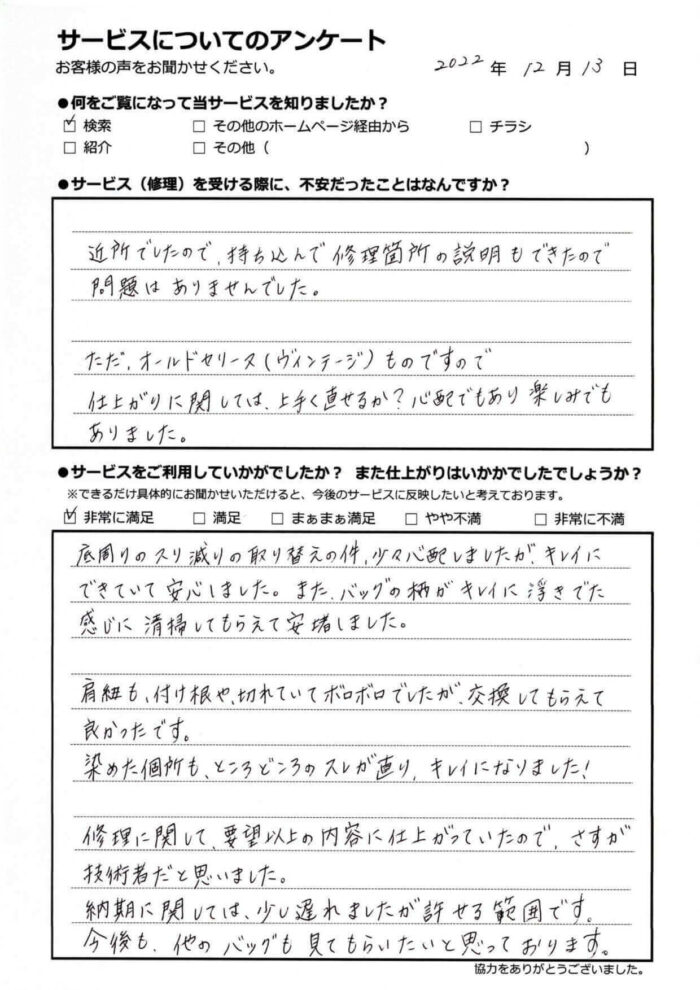 サービスについてのアンケート
お客様の声をお聞かせください。
2022 年 12 月 13 日
●何をご覧になって当サービスを知りましたか？
☑ 検索 □ その他のホームページ経由から □ チラシ
□ 紹介 □ その他（ ）
●サービス（修理）を受ける際に、不安だったことはなんですか？
近所でしたので、持ち込んで修理箇所の説明もできたので
問題はありませんでした。
ただ、オールドセリース（ヴィンテージ）ものですので
仕上がりに関しては、上手く直せるか？心配でもあり楽しみでも
ありました。
●サービスをご利用していかがでしたか？ また仕上がりはいかかでしたでしょうか？
※できるだけ具体的にお聞かせいただけると、今後のサービスに反映したいと考えております。
☑ 非常に満足 □ 満足 □ まぁまぁ満足 □ やや不満 □ 非常に不満
底周りのスリ減りの取り替えの件、少々心配しましたが、キレイに
できていて安心しました。また、バッグの柄がキレイに浮きでた
感じに清掃してもらえて安堵しました。
肩紐も、付け根や、切れていてボロボロでしたが、交換してもらえて
良かったです。
染めた個所も、ところどころのスレが直り、キレイになりました！
修理に関して、要望以上の内容に仕上がっていたので、さすが
技術者だと思いました。
納期に関しては、少し遅れましたが許せる範囲です。
今後も、他のバッグも見てもらいたいと思っております。
協力をありがとうございました。